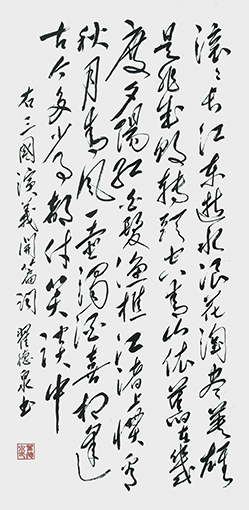 滚〻长江东逝水浪花淘尽英雄
是非成败转头空青山依舊在幾
度夕陽红白髮渔樵江渚上惯看
秋月春风一壶濁酒喜相逢
古今多少事都付笑谈中
右三國演義開篇词 翟德泉书